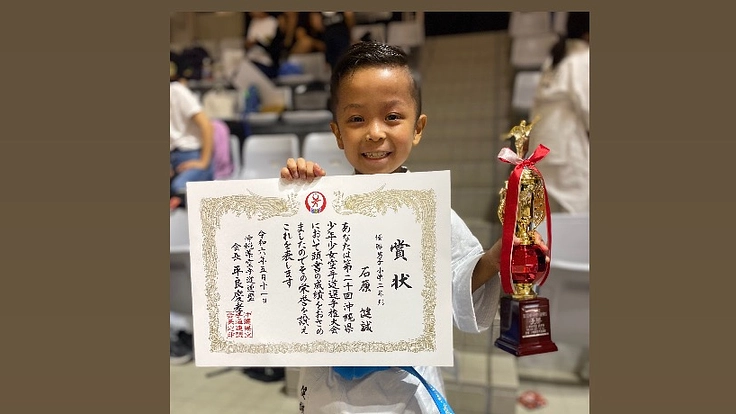 賞状
優勝 男子 小学二年 形
石原 健誠
あなたは第二十回沖縄県
少年少女空手道選手権大会
において頭書の成績をおさめ
ましたのでその栄誉を讃え
これを表します
令和六年五月十一日
沖縄県空手道連盟
会長 平良慶孝